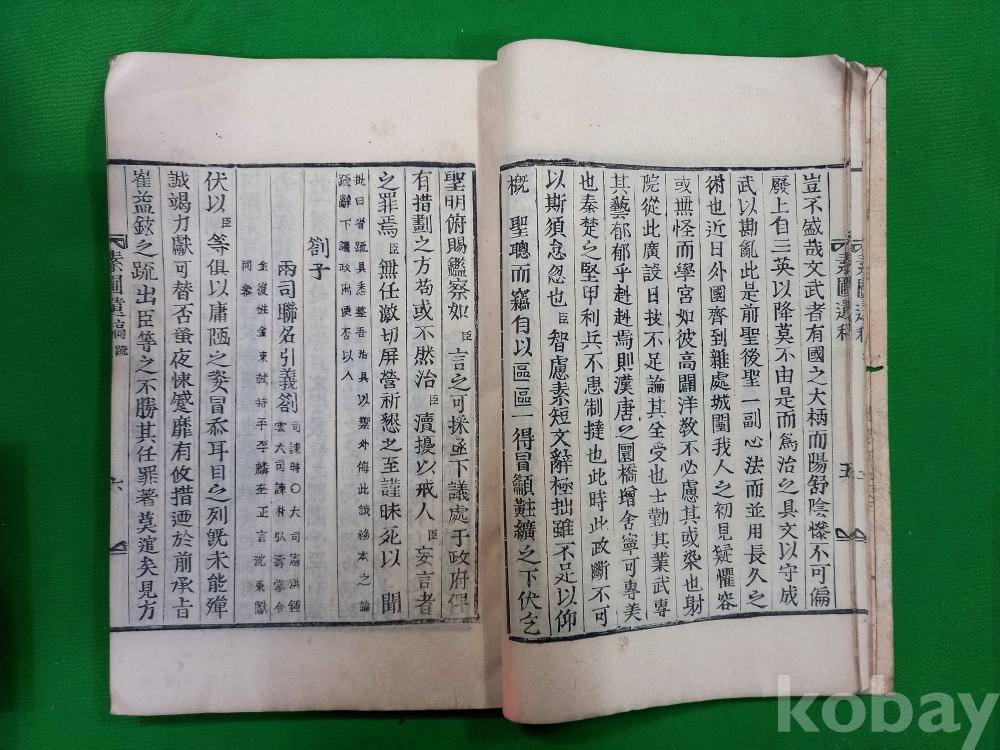 豈不盛哉文武者有國之大柄而陽舒陰慘不可偏
廢上自三英以降莫不由是而爲治之具文以守成
武以勘亂此是前聖後聖一副心法而並用長久之
術也近日外國齊到雜處城闉我人之初見疑懼容
或無怪而學宮如彼高闢洋敎不必慮其或染也射
院從此廣設日技不足論其全受也士勤其業武專
其藝郁郁乎赳赳焉則漢唐之圜橋增舍寧可專美
也秦楚之堅甲利兵不患制撻也此時此政斷不可
以斯須忽忽也臣智慮素短文辭極拙雖不足以仰
槪 聖聰而竊自以區區一得冒籲黈纊之下伏乞
聖明俯賜鑑察如臣言之可採亟下議處于政府俾
有措劃之方苟或不然治臣瀆擾以戒人臣妄言者
之罪焉臣無任激切屛營祈懇之至謹昧死以 聞
批曰省疏具悉整吾治具以禦外侮此誠務本之論
疏辭下議政府便否以入
劄子
兩司聯名引義劄
司諫時〇大司憲洪鍾
雲大司諫朴弘壽掌令
金復性金東軾持平李麟奎正言沈東獻
同參
伏以臣等俱以庸陋之姿冒忝耳目之列旣未能殫
誠竭力獻可替否蚤夜悚蹙靡有攸措迺於前承旨
崔益鉉之疏出臣等之不勝其任罪著莫逭矣見方
素圃遺稿 疏
六
素圃遺稿
五
kobay